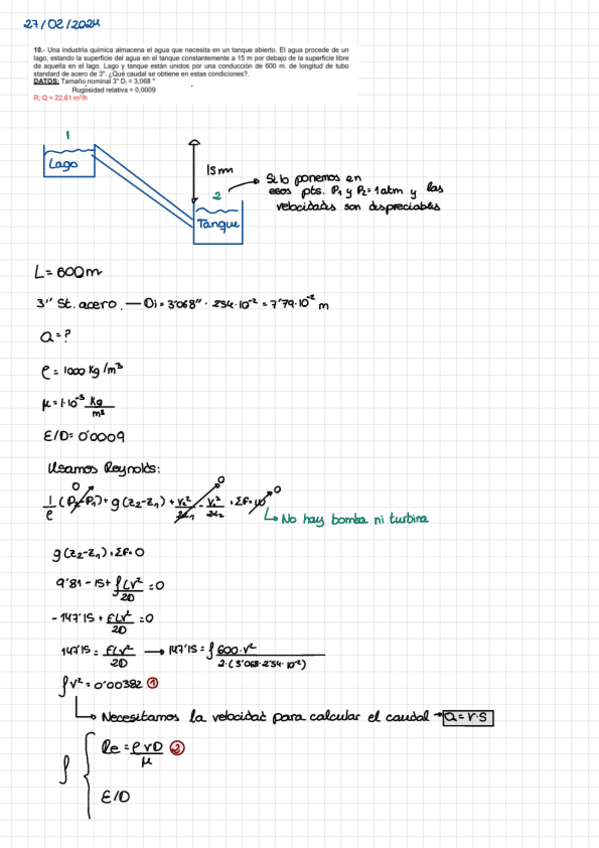 27/02/2024
10.- Una industria química almacena el agua que necesita en un tanque abierto. El agua procede de un
lago, estando la superficie del agua en el tanque constantemente a 15 m por debajo de la superficie libre
de aquella en el lago. Lago y tanque están unidos por una conducción de 600 m. de longitud de tubo
standard de acero de 3". ¿Qué caudal se obtiene en estas condiciones?.
DATOS: Tamaño nominal 3" Di = 3,068 "
Rugosidad relativa = 0,0009
R; Q = 22,61 m³/h
1
Lago
15m
2
Tanque
Si lo ponemos en
esos pts. P₁ y P₂ = 1atm y las
velocidades son despreciables
L = 600m
3" St. acero. — Di = 3'068" · 2'54·10⁻² = 7'79·10⁻² m
Q = ?
ρ = 1000 kg/m³
μ = 1·10⁻³ kg/m³
ε/D = 0'0009
Usamos Reynolds:
0 0 0
1/ρ (P₂-P₁) + g(z₂-z₁) +
No hay bomba ni turbina
g(z₂-z₁) + Σf = 0
9'81 · -15 + fLv²/2D = 0
-147'15 + fLv²/2D = 0
147'15 = fLv²/2D → 147'15 = f 600·v²/2·(3'068·2'54·10⁻²)
f v² = 0'00382 ①
Necesitamos la velocidad para calcular el caudal → Q = v·S
f { Re = ρvD/μ ②
ε/D